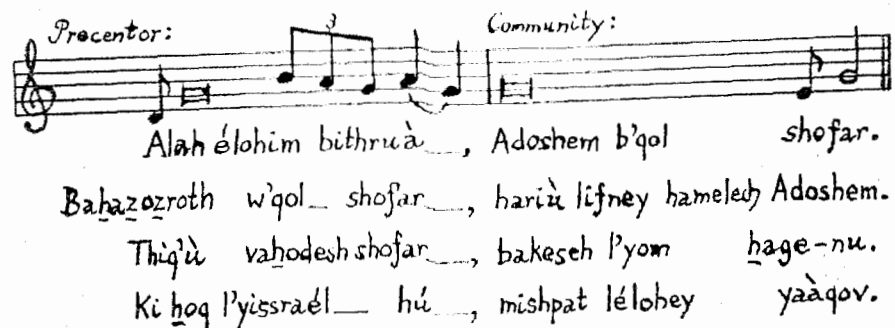 Precentor: Community:
3
Alah élohim bithruà__, Adoshem b'qol shofar.
Baẖaẕoẕroth w'qol_ shofar__, hariù lifney hamelech Adoshem.
Thiq'ù vaẖodesh shofar__, bakeseh l'yom ẖage-nu.
Ki ẖoq l'yissraél__ hú__, mishpat lélohey yaàqov.